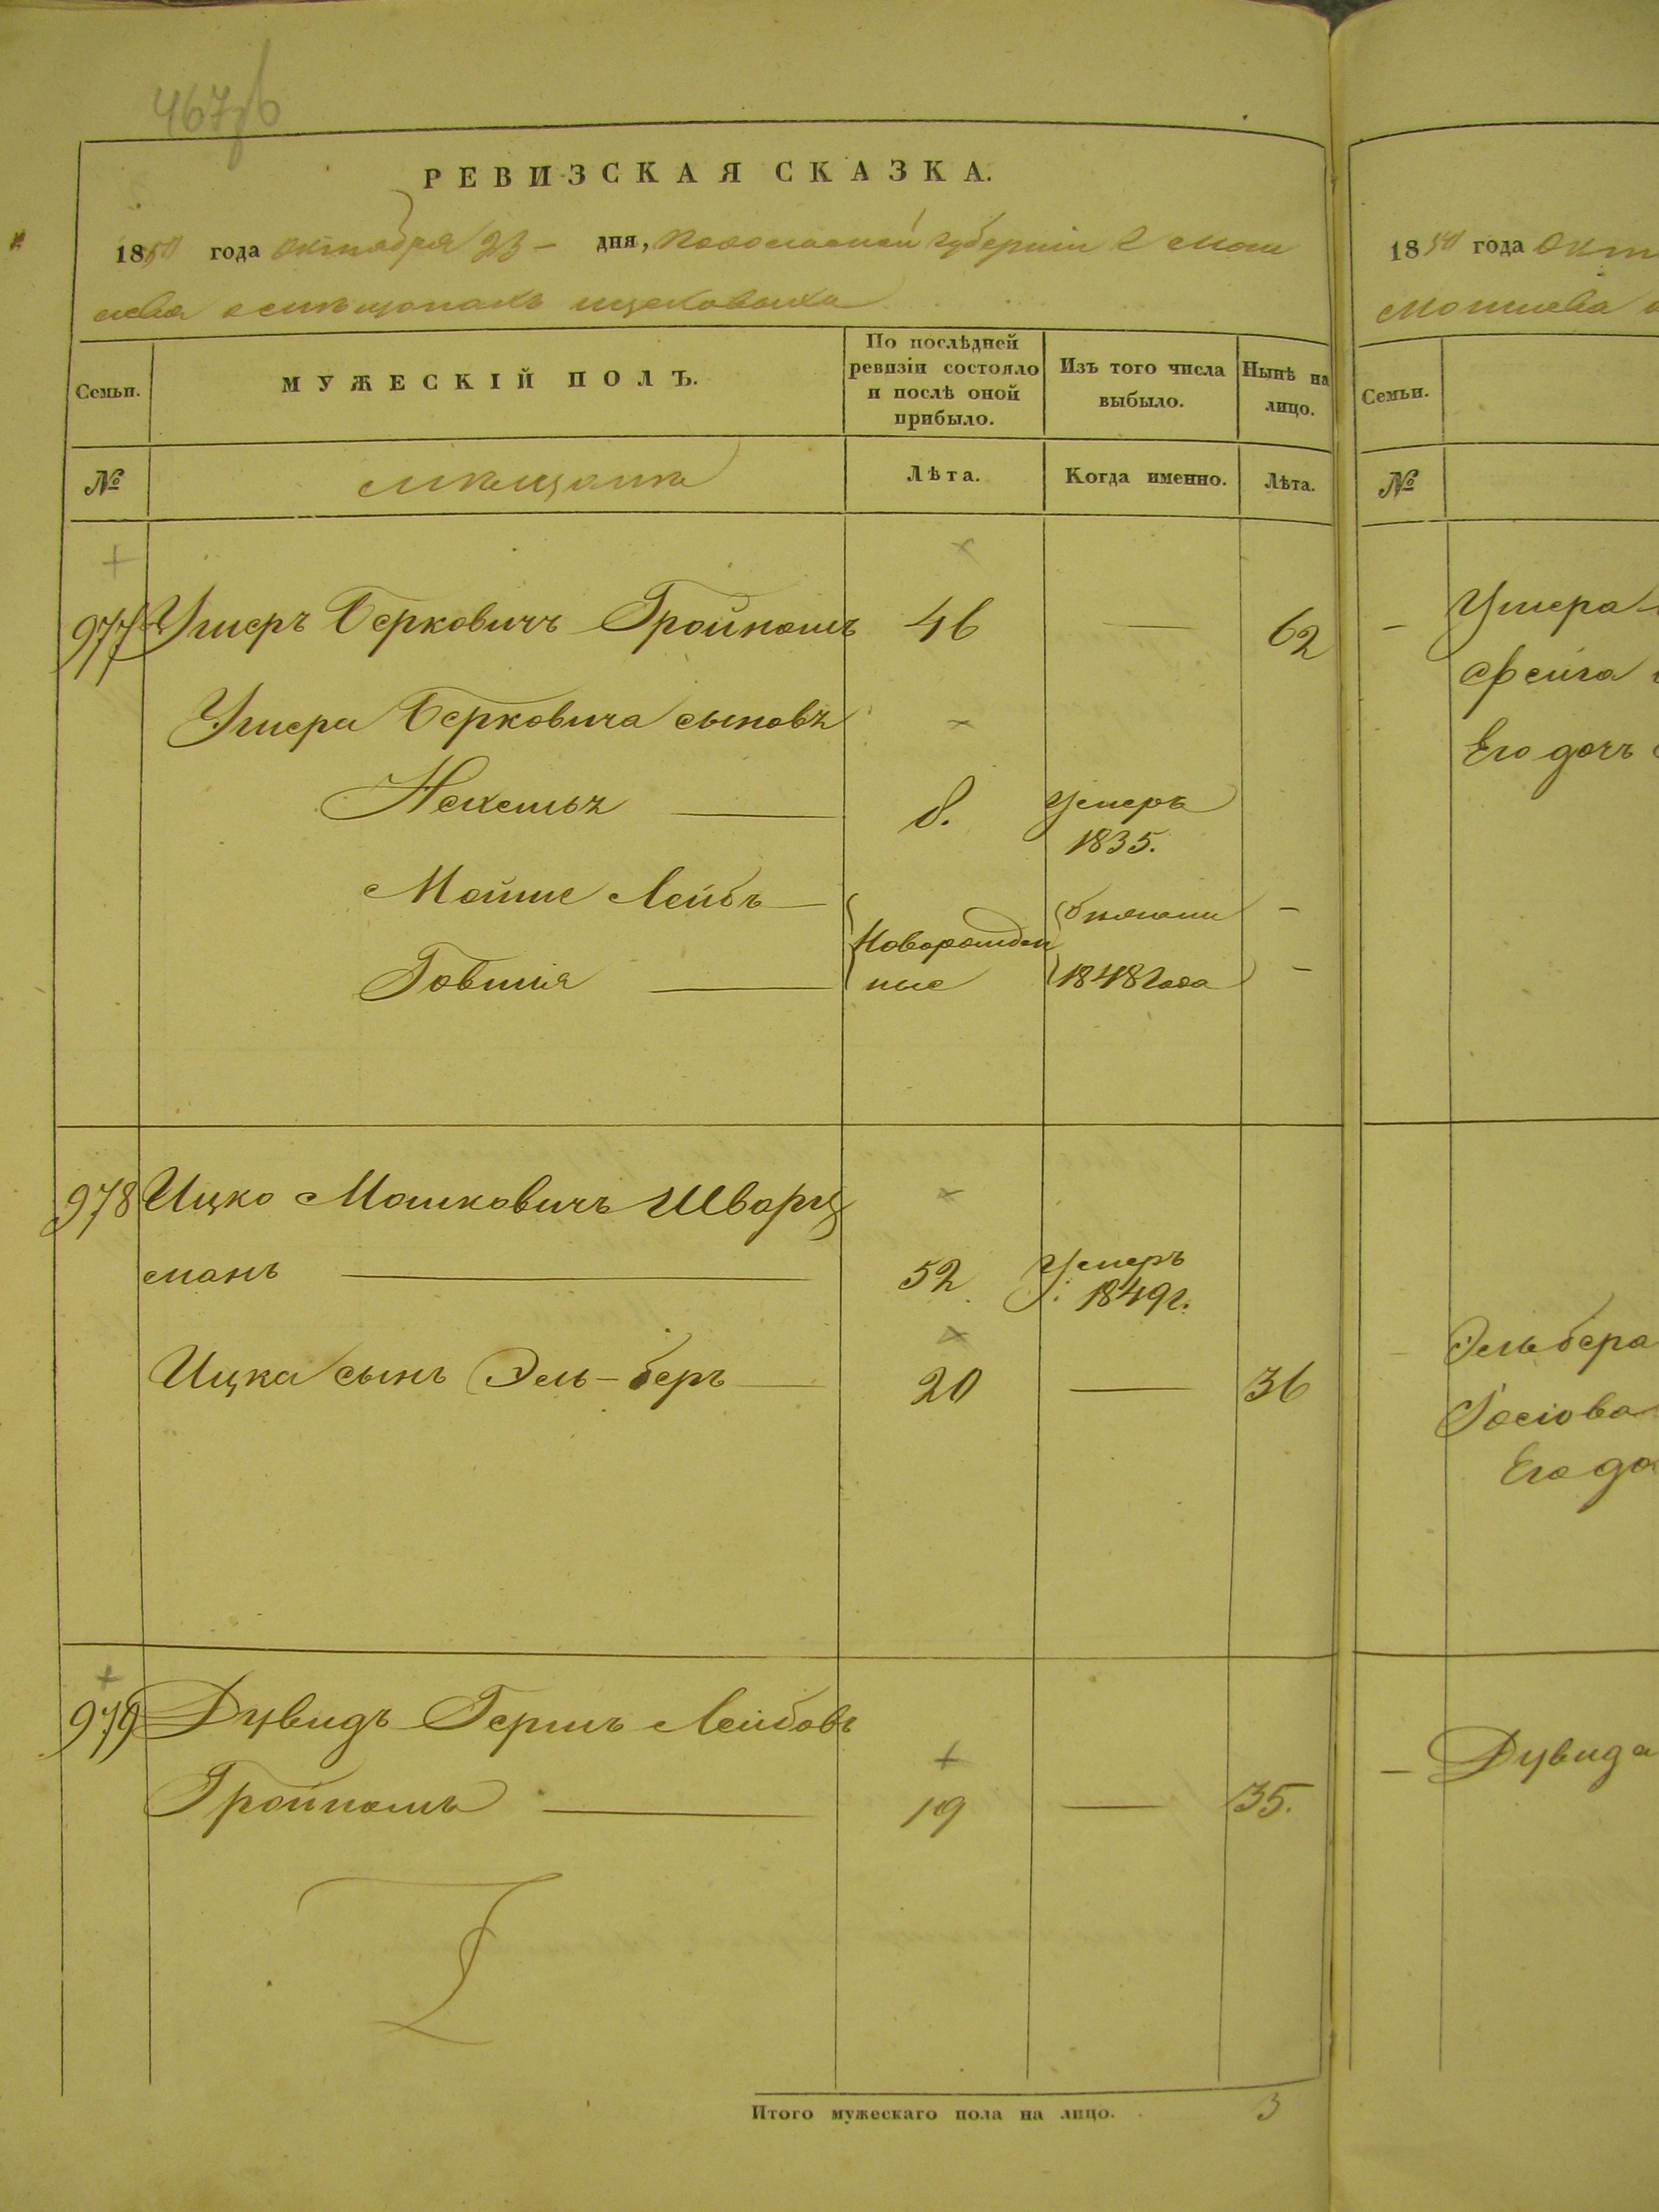 467об
РЕВИЗСКАЯ СКАЗКА.
1850 года октября 23 - дня, Подольской губерніи г Моги
лева о мѣщанахъ
МУЖЕСКІЙ ПОЛЪ.
Семьи.
По послѣдней ревизіи состояло и послѣ оной прибыло.
Изъ того числа выбыло.
Нынѣ на лицо.
№
Лѣта.
Когда именно.
Лѣта.
977 Ушеръ Берковичъ Гройпашъ 46 — 62
Ушера Берковича сыновъ
Нехемья — 8. умеръ 1835.
Мойше Лейбъ — Новорожден бѣжали -
Говшія — ные 1848 года -
978 Ицко Мошковичъ Шварц
манъ — 52 умеръ 1849 г.
Ицка сынъ Эль-беръ — 20 — 36
979 Дувидъ Гершъ Лейбовъ
Гройпашъ — 19 — 35.
Итого мужескаго пола на лицо. 3
1850 года Окт
Могилева
Семьи.
№
- Ушера
Фейга
Его дочь
Эльбера
Его до
- Дувида